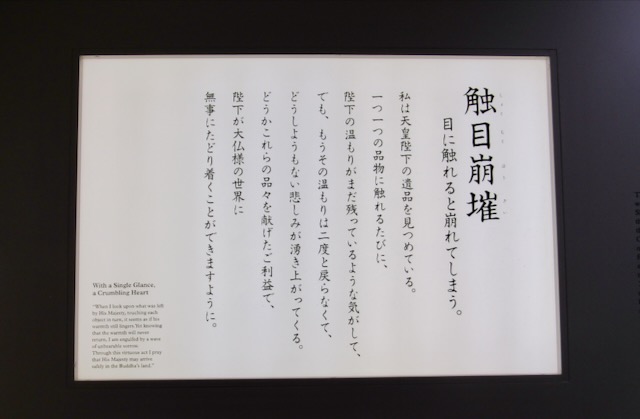 触目崩摧
目に触れると崩れてしまう。
私は天皇陛下の遺品を見つめている。
一つ一つの品物に触れるたびに、
陛下の温もりがまだ残っているような気がして、
でも、もうその温もりは二度と戻らなくて、
どうしようもない悲しみが湧き上がってくる。
どうかこれらの品々を献げたご利益で、
陛下が大仏様の世界に
無事にたどり着くことができますように。
With a Single Glance,
a Crumbling Heart
"When I look upon what was left
by His Majesty, touching each
object in turn, it seems as if his
warmth still lingers. Yet knowing
that the warmth will never
return, I am engulfed by a wave
of unbearable sorrow.
Through this virtuous act I pray
that His Majesty may arrive
safely at the Buddha's land."